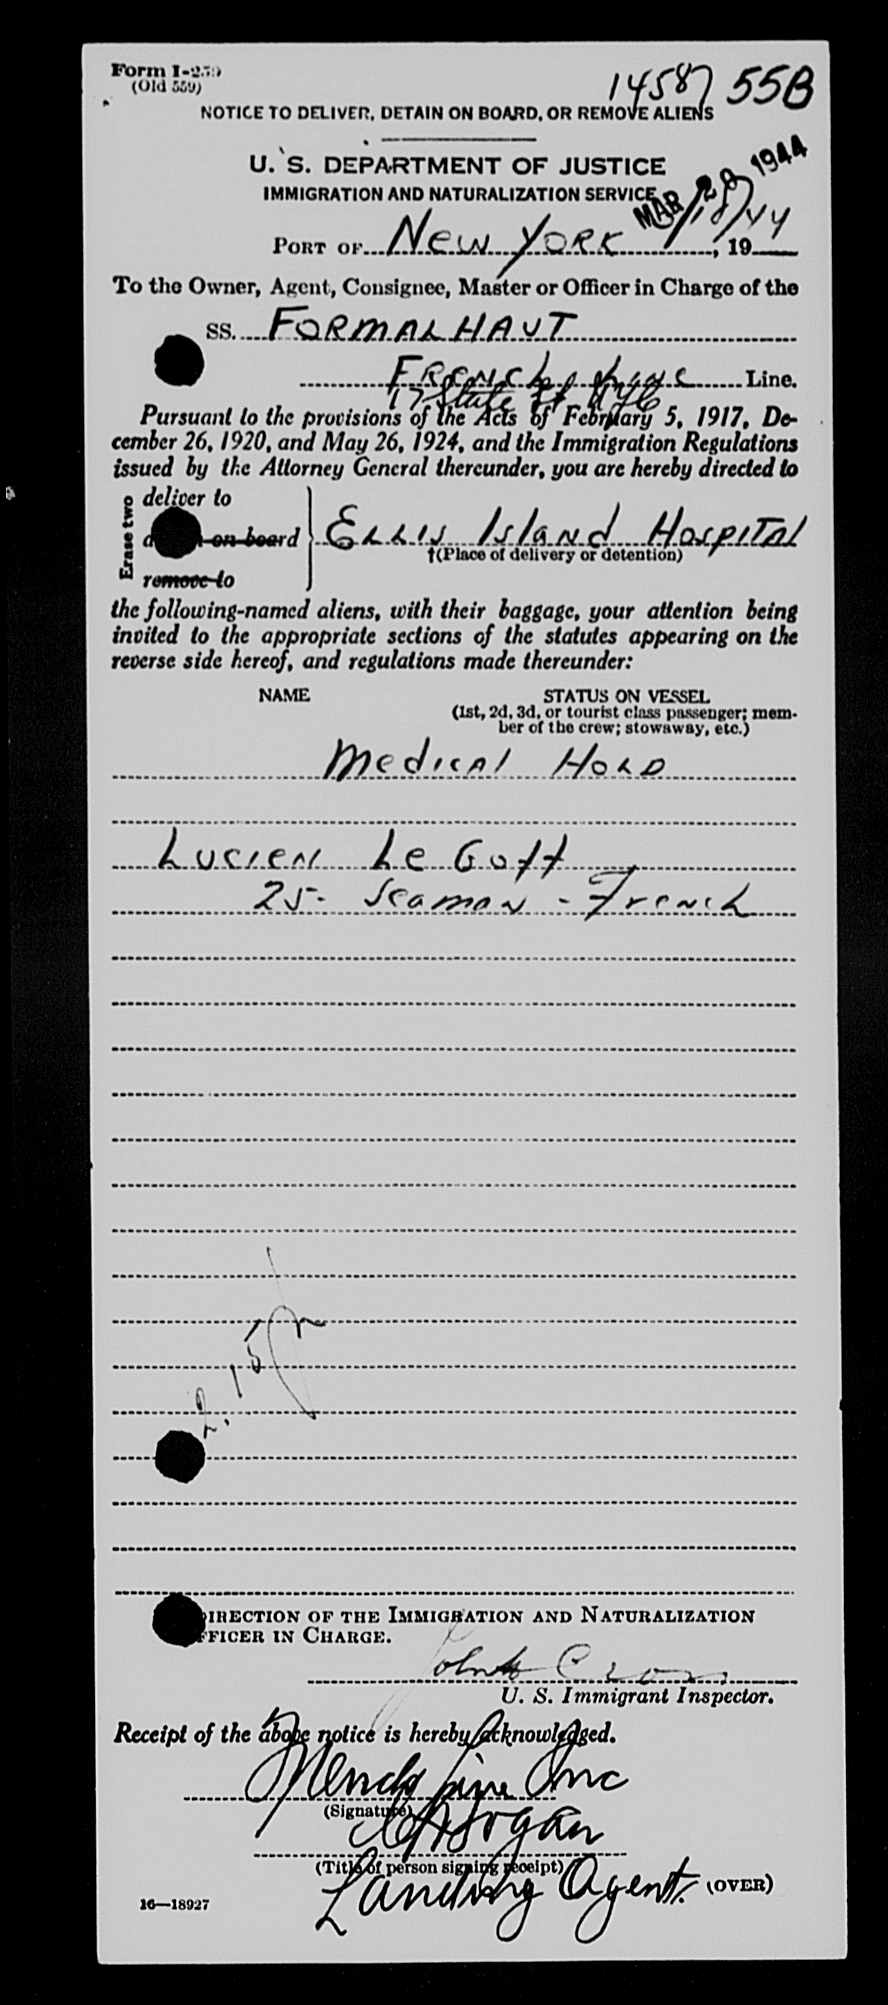 Form I-259
(Old 559)
14587 55B
NOTICE TO DELIVER, DETAIN ON BOARD, OR REMOVE ALIENS
U. S. DEPARTMENT OF JUSTICE
IMMIGRATION AND NATURALIZATION SERVICE
MAR 28 1944
PORT OF New York /18/44, 19
To the Owner, Agent, Consignee, Master or Officer in Charge of the
SS. FORMALHAUT
French Line Line.
17 State St NYC
Pursuant to the provisions of the Acts of February 5, 1917, De-
cember 26, 1920, and May 26, 1924, and the Immigration Regulations
issued by the Attorney General thereunder, you are hereby directed to
Erase two
deliver to
on board
remove to
Ellis Island Hospital
†(Place of delivery or detention)
the following-named aliens, with their baggage, your attention being
invited to the appropriate sections of the statutes appearing on the
reverse side hereof, and regulations made thereunder:
NAME STATUS ON VESSEL
(1st, 2d, 3d, or tourist class passenger; mem-
ber of the crew; stowaway, etc.)
Medical Hold
Lucien Le Goff
25 - Seaman - French
2.15
IRECTION OF THE IMMIGRATION AND NATURALIZATION
FFICER IN CHARGE.
U. S. Immigrant Inspector.
Receipt of the above notice is hereby acknowledged.
French Line Inc
(Signature)
(Title of person signing receipt)
Landing Agent.
(OVER)
16—18927